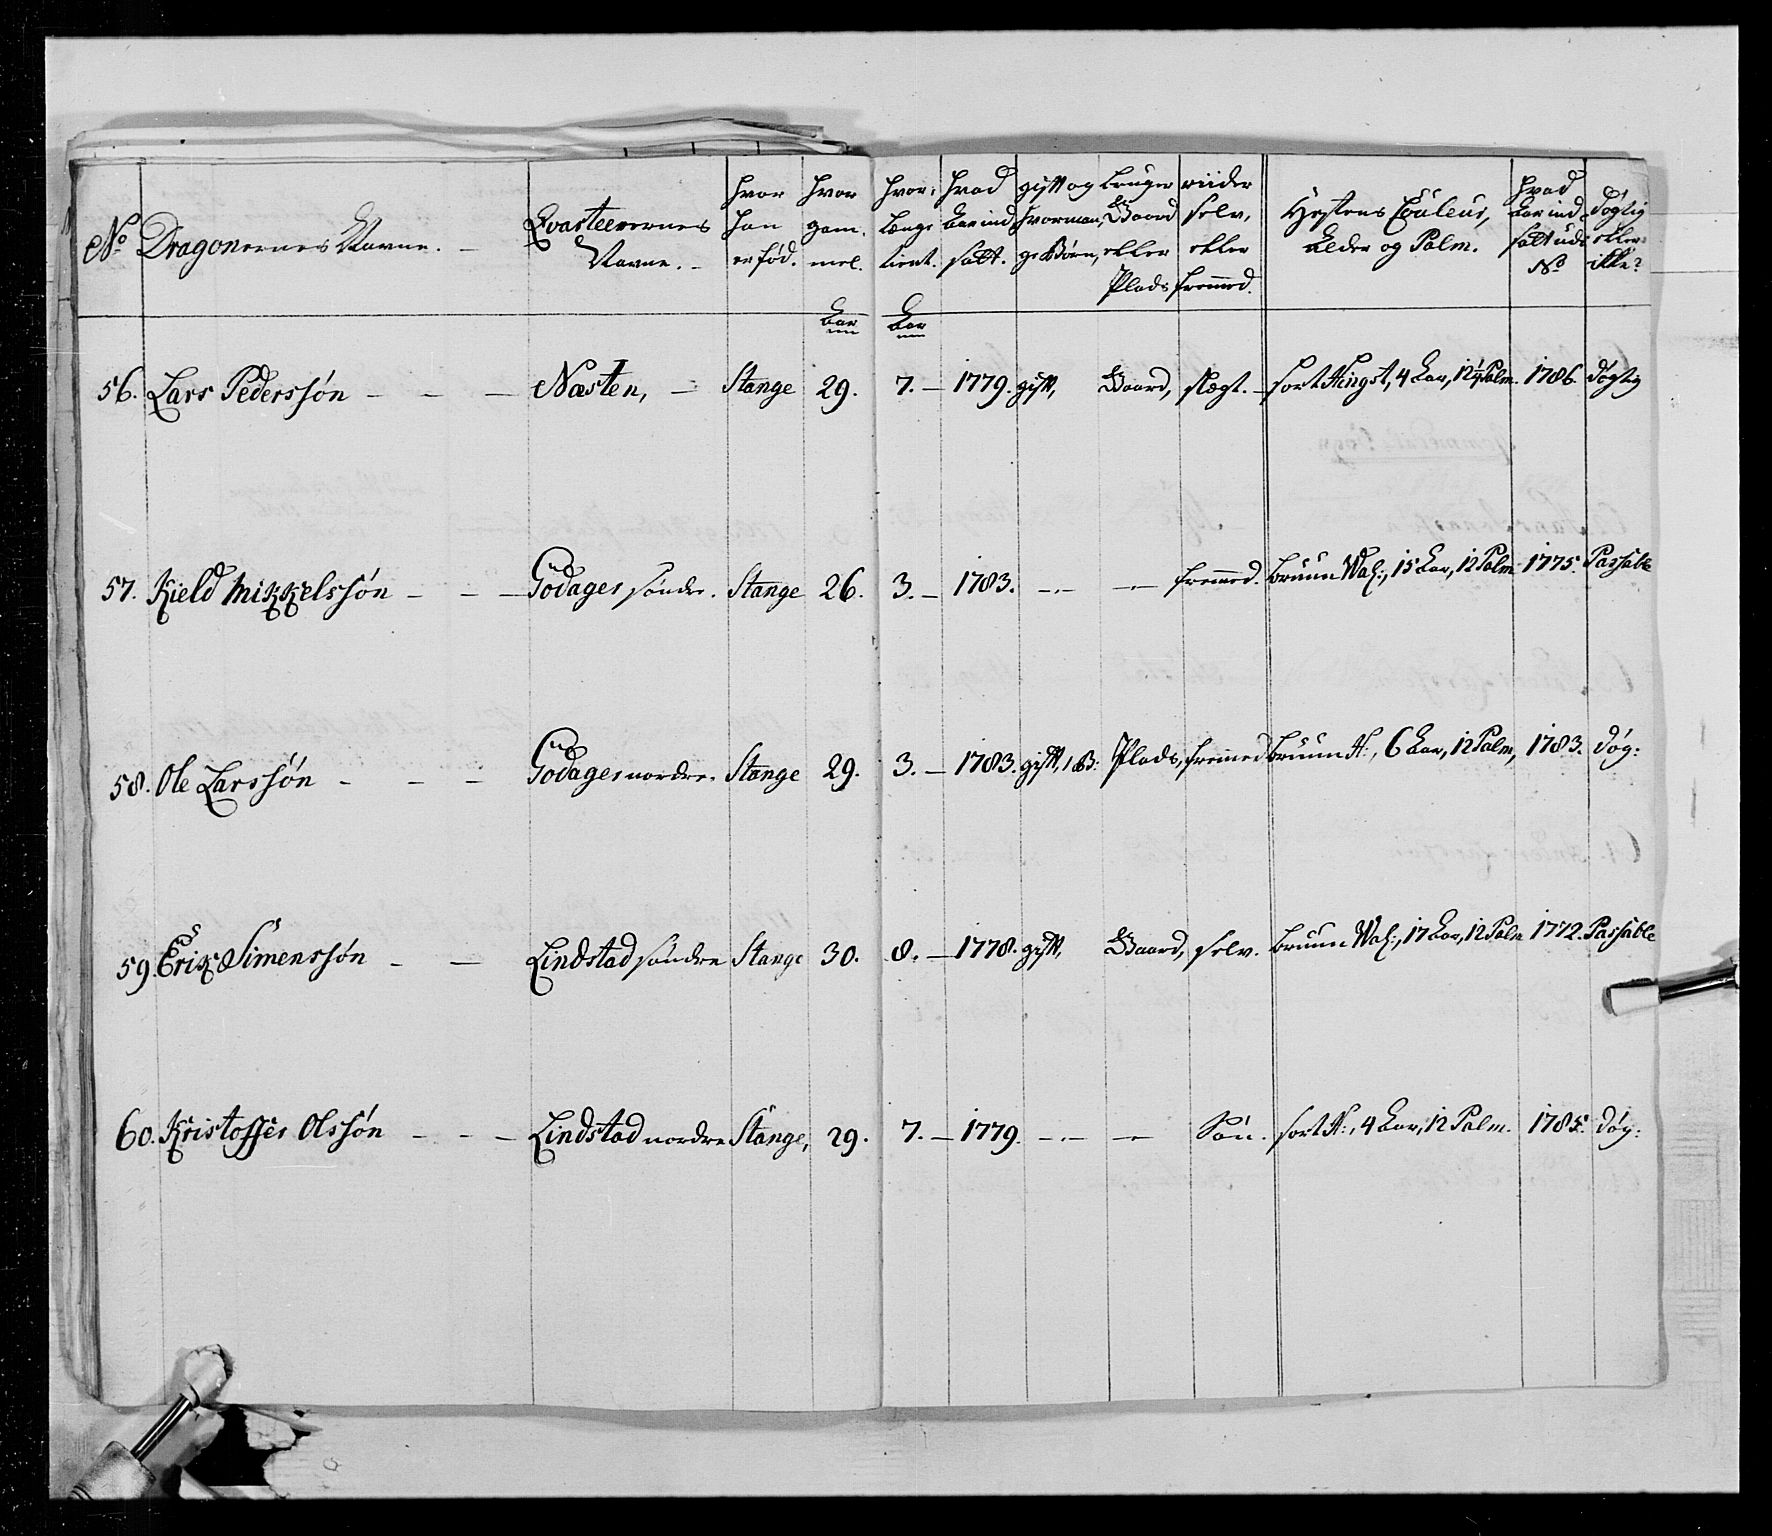 No Dragonernes Navne. – Qvarteerernes Navne. – hvor han er fød. hvor gam- mel. hvor- længe tient. hvad Aar ind satt. gift og hvorman- ge Børn, bruger Gaard eller Plads riider selv, eller fremmed. Hestens Couleur, Alder og Palm. hvad Aar ind satt ud No døgtig eller ikke?
Aar Aar
56. Lars Pederssøn – – – Næsten, – Stange 29. 7. – 1779. gift, Gaard, slægt. – sort Hingst, 4 Aar, 12 1/4 Palm. 1786. døgtig
57. Kield Mikkelssøn – – – Godager søndre. Stange 26. 3. – 1783. – – – fremmed. bruun Wal:, 15 Aar, 12 Palm 1775. Passable
58. Ole Larssøn – – – Godager nordre. Stange 29. 3. – 1783. gift, 1 B: Plads, fremmed bruun H:, 6 Aar, 12 Palm, 1783. døg:
59. Erik Simenssøn – – Lindstad søndre Stange 30. 8. – 1778. gift, Gaard, selv. bruun Wal:, 17 Aar, 12 Palm 1772. Passable
60. Kristoffer Olssøn – – – Lindstad nordre Stange, 29. 7. – 1779. – – – Søn. sort H:, 4 Aar, 12 Palm. 1785. døg: